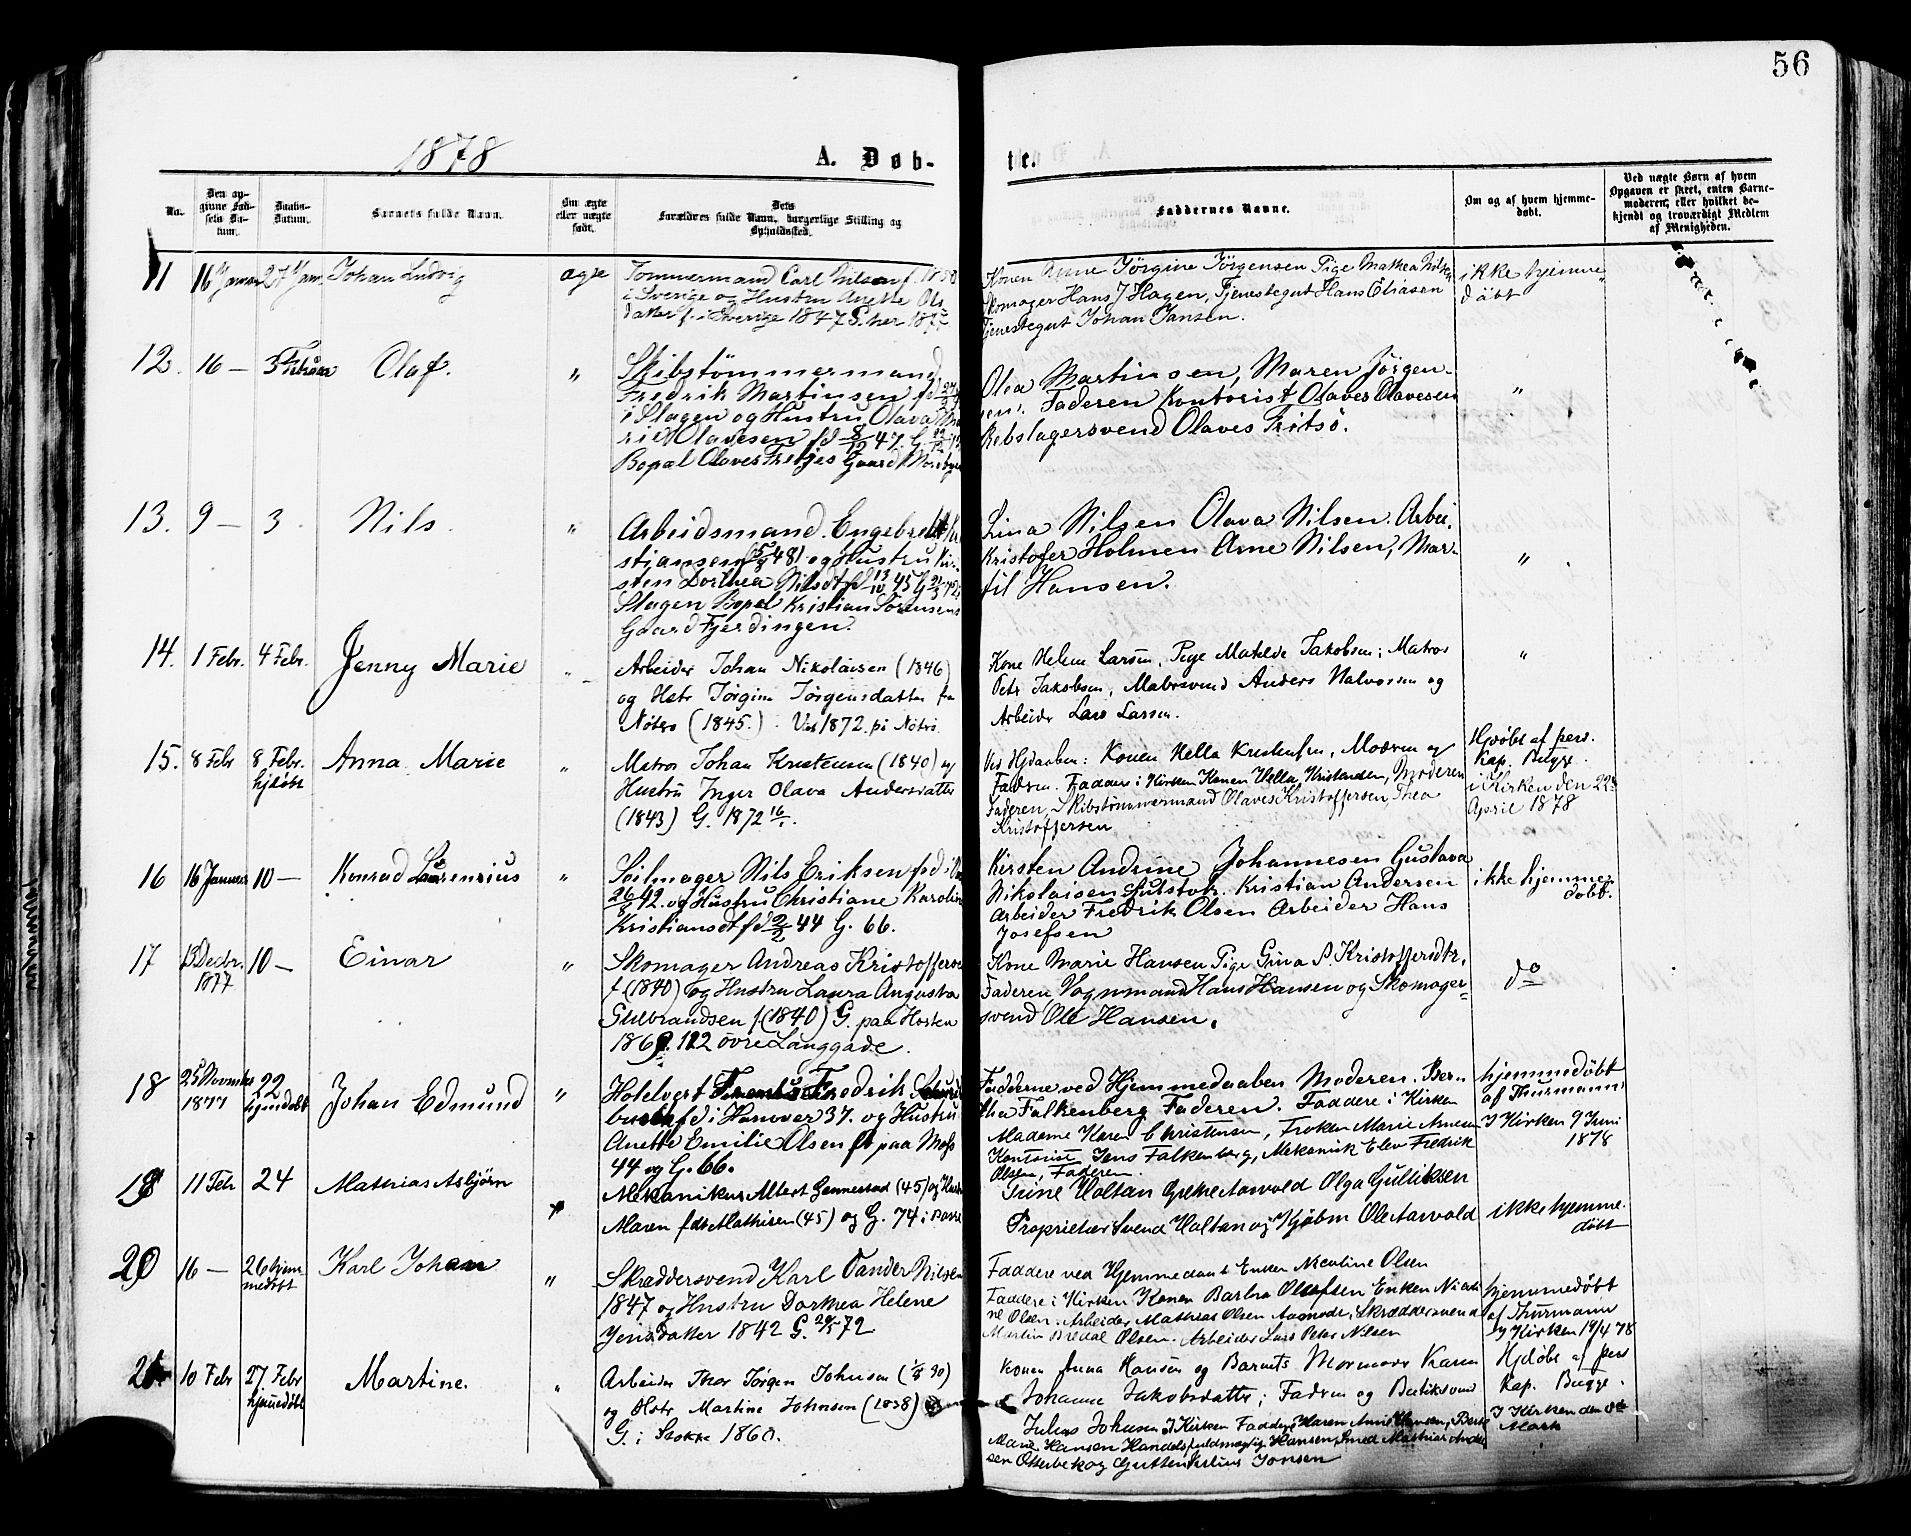 56
1878
A. Døb-
te.
No.
Den opgivne Fødsels Datum.
Daabs-Datum.
Barnets fulde Navn.
Om ægte eller uægte født.
Dets Forældres fulde Navn, borgerlige Stilling og Opholdssted.
Faddernes Navne.
Om og af hvem hjemmedøbt.
Ved uægte Børn af hvem Opgaven er skeet, enten Barnemoderen, eller hvilket bekjendt og troværdigt Medlem af Menigheden.
11 16 Januar 27 Jan Johan Ludvig ægte
Tømmermand Carl Nilsen f. 1850
i Sverige og Hustru Anette Ols
datter f. i Sverige 1847 G. her
Konen Anne Jörgine Jörgensen Pige Mathea Nils
Skomager Hans J Hagen, Tjenestegut Hans Eliasen
Tjenestegut Johan Jansen.
ikke hjemme
döbt
12. 16 — 3 Februar Olaf. "
Skibstömmermand
Fredrik Martinsen fd
i Slagen og Hustru Olava
Olavesen fd 8/12 47. G.
Bopæl Olaves Gaard
Olea Martinsen, Maren Jörgen-
sen. Faderen Kontorist Olaves Olavesen
Rebslagersvend Olaves Fritsö.
"
13. 9 — 3 Nils. "
Arbeidsmand. Engebret Kri
stjansen 48) og Hustru Kir-
sten Dorthea Nilsdt fd 13/10 45 G
Slagen Bopæl Kristian Sörensens
Gaard Fjerdingen.
Lina Nilsen Olava Nilsen. Arbei.
Kristofer Holmen Arne Nilsen, Mar-
til Hansen.
"
14. 1 Febr. 4 Febr. Jenny Marie "
Arbeider Johan Nikolaisen (1846)
og Hstr Jörgine Jörgensdatter fra
Nöterö (1845.) Viet 1872 på Nöterö
Kone Helene Larsen, Pige Matilde Jakobsen; Matros
Petr Jakobsen, Malersvend Anders Halvorsen og
Arbeider Lars Larsen.
"
15. 8 Febr 8 Febr. hjdöbt Anna Marie "
Matros Johan Kristensen (1840) og
Hustru Inger Olava Andersdatter
(1843) G. 1872 16/1.
Ved Hjdaaben: Konen Hella Kristensen, Moderen og
Faderen. Faddere i Kirken Konen Hella Kristensen, Moderen
Faderen, Skibstömmermand Olaves Kristoffersen, Thea
Kristoffersen
Hjdöbt af pers.
Kap. Bugge.
i Kirken den 22de
April 1878
16 16 Januar 10 — Konrad Laurensius "
Seilmager Nils Eriksen fød i
42. og Hustru Christiane Karoline
Kristiansdt fd 2/2 44 G. 66.
Kirsten Andrine Johannesen Gustava
Nikolaisen Kristian Andersen
Arbeider Fredrik Olsen Arbeider Hans
Josefsen
ikke hjemme
döbt.
17 13 Decbr. 1877 10 — Einar "
Skomager Andreas Kristoffersen
f. (1840) og Hustru Laura Augusta
Gulbrandsen f (1840) G. paa Horten
1869. 112 övre Langgade.
Kone Marie Hansen Pige Gina P. Kristoffersdtr,
Faderen, Vognmand Hans Hansen og Skomager-
svend Ole Hansen.
do
18 25 Novembr 1877 22 hjemdöbt Johan Edmund "
Hotelvert Fredrik
fd i Hanover 37. og Hustru
Anette Emilie Olsen fd paa Moss
44 og G. 66.
Fadderne ved Hjemmedaaben Moderen. Ber-
tha Falkenberg Faderen. Faddere i Kirken
Madame Karen Christensen, Fröken Marie Arnesen
Kontorist Jens Falkenberg, Mekanisk Elev Fredrik
Olsen, Faderen.
hjemmedöbt
af Thurmann
I Kirken 9 Juni
1878
19 11 Febr 24 Mathias Asbjörn "
Mekanikus Albert Gennestad (45) og Hustru
Maren f dt Mathisen (45) og G. 74 i Borre
Trine Holtan Grethe Aarvold Olga Gulliksen
Proprietær Svend Holtan og Kjöbm Ole Aarvold
ikke hjemme
döbt
20 16 — 26 hjem medöbt Karl Johan "
Skræddersvend Karl Vander Nilsen
1847 og Hustru Dorthea Helene
Jensdatter 1842 G. 72
Faddere ved Hjemmedaab Enken Nicoline Olsen
Faddere i Kirken Konen Barbra Olafsen Enken Nicoli
ne Olsen. Arbeider Mathias Olsen Aamode, Skræddersvend
Martin Bredal Olsen. Arbeider Lars Peter Nilsen
hjemmedöbt
af Thurmann
I Kirken 19/4 78
21 10 Febr 27 Febr hjemdöbt Martine. "
Arbeider Thor Jörgen Johnsen
og Hstr Martine Johnsen (1838)
G. i Stokke 1860.
Konen Anna Hansen og Barnets Mormoder Karen
Johanne Jakobsdatter; Faderen og Butiksvend
Julius Johnsen I Kirken Faddere Karen Anne Hansen, Berte
Marie Hansen Handelsfuldmægtig Hansen, Smed Mathias Ander
sen Otterbek og Gutten Julius Jonsen
Hjdöbt af pers
Kap. Bugge.
I Kirken den
Marts